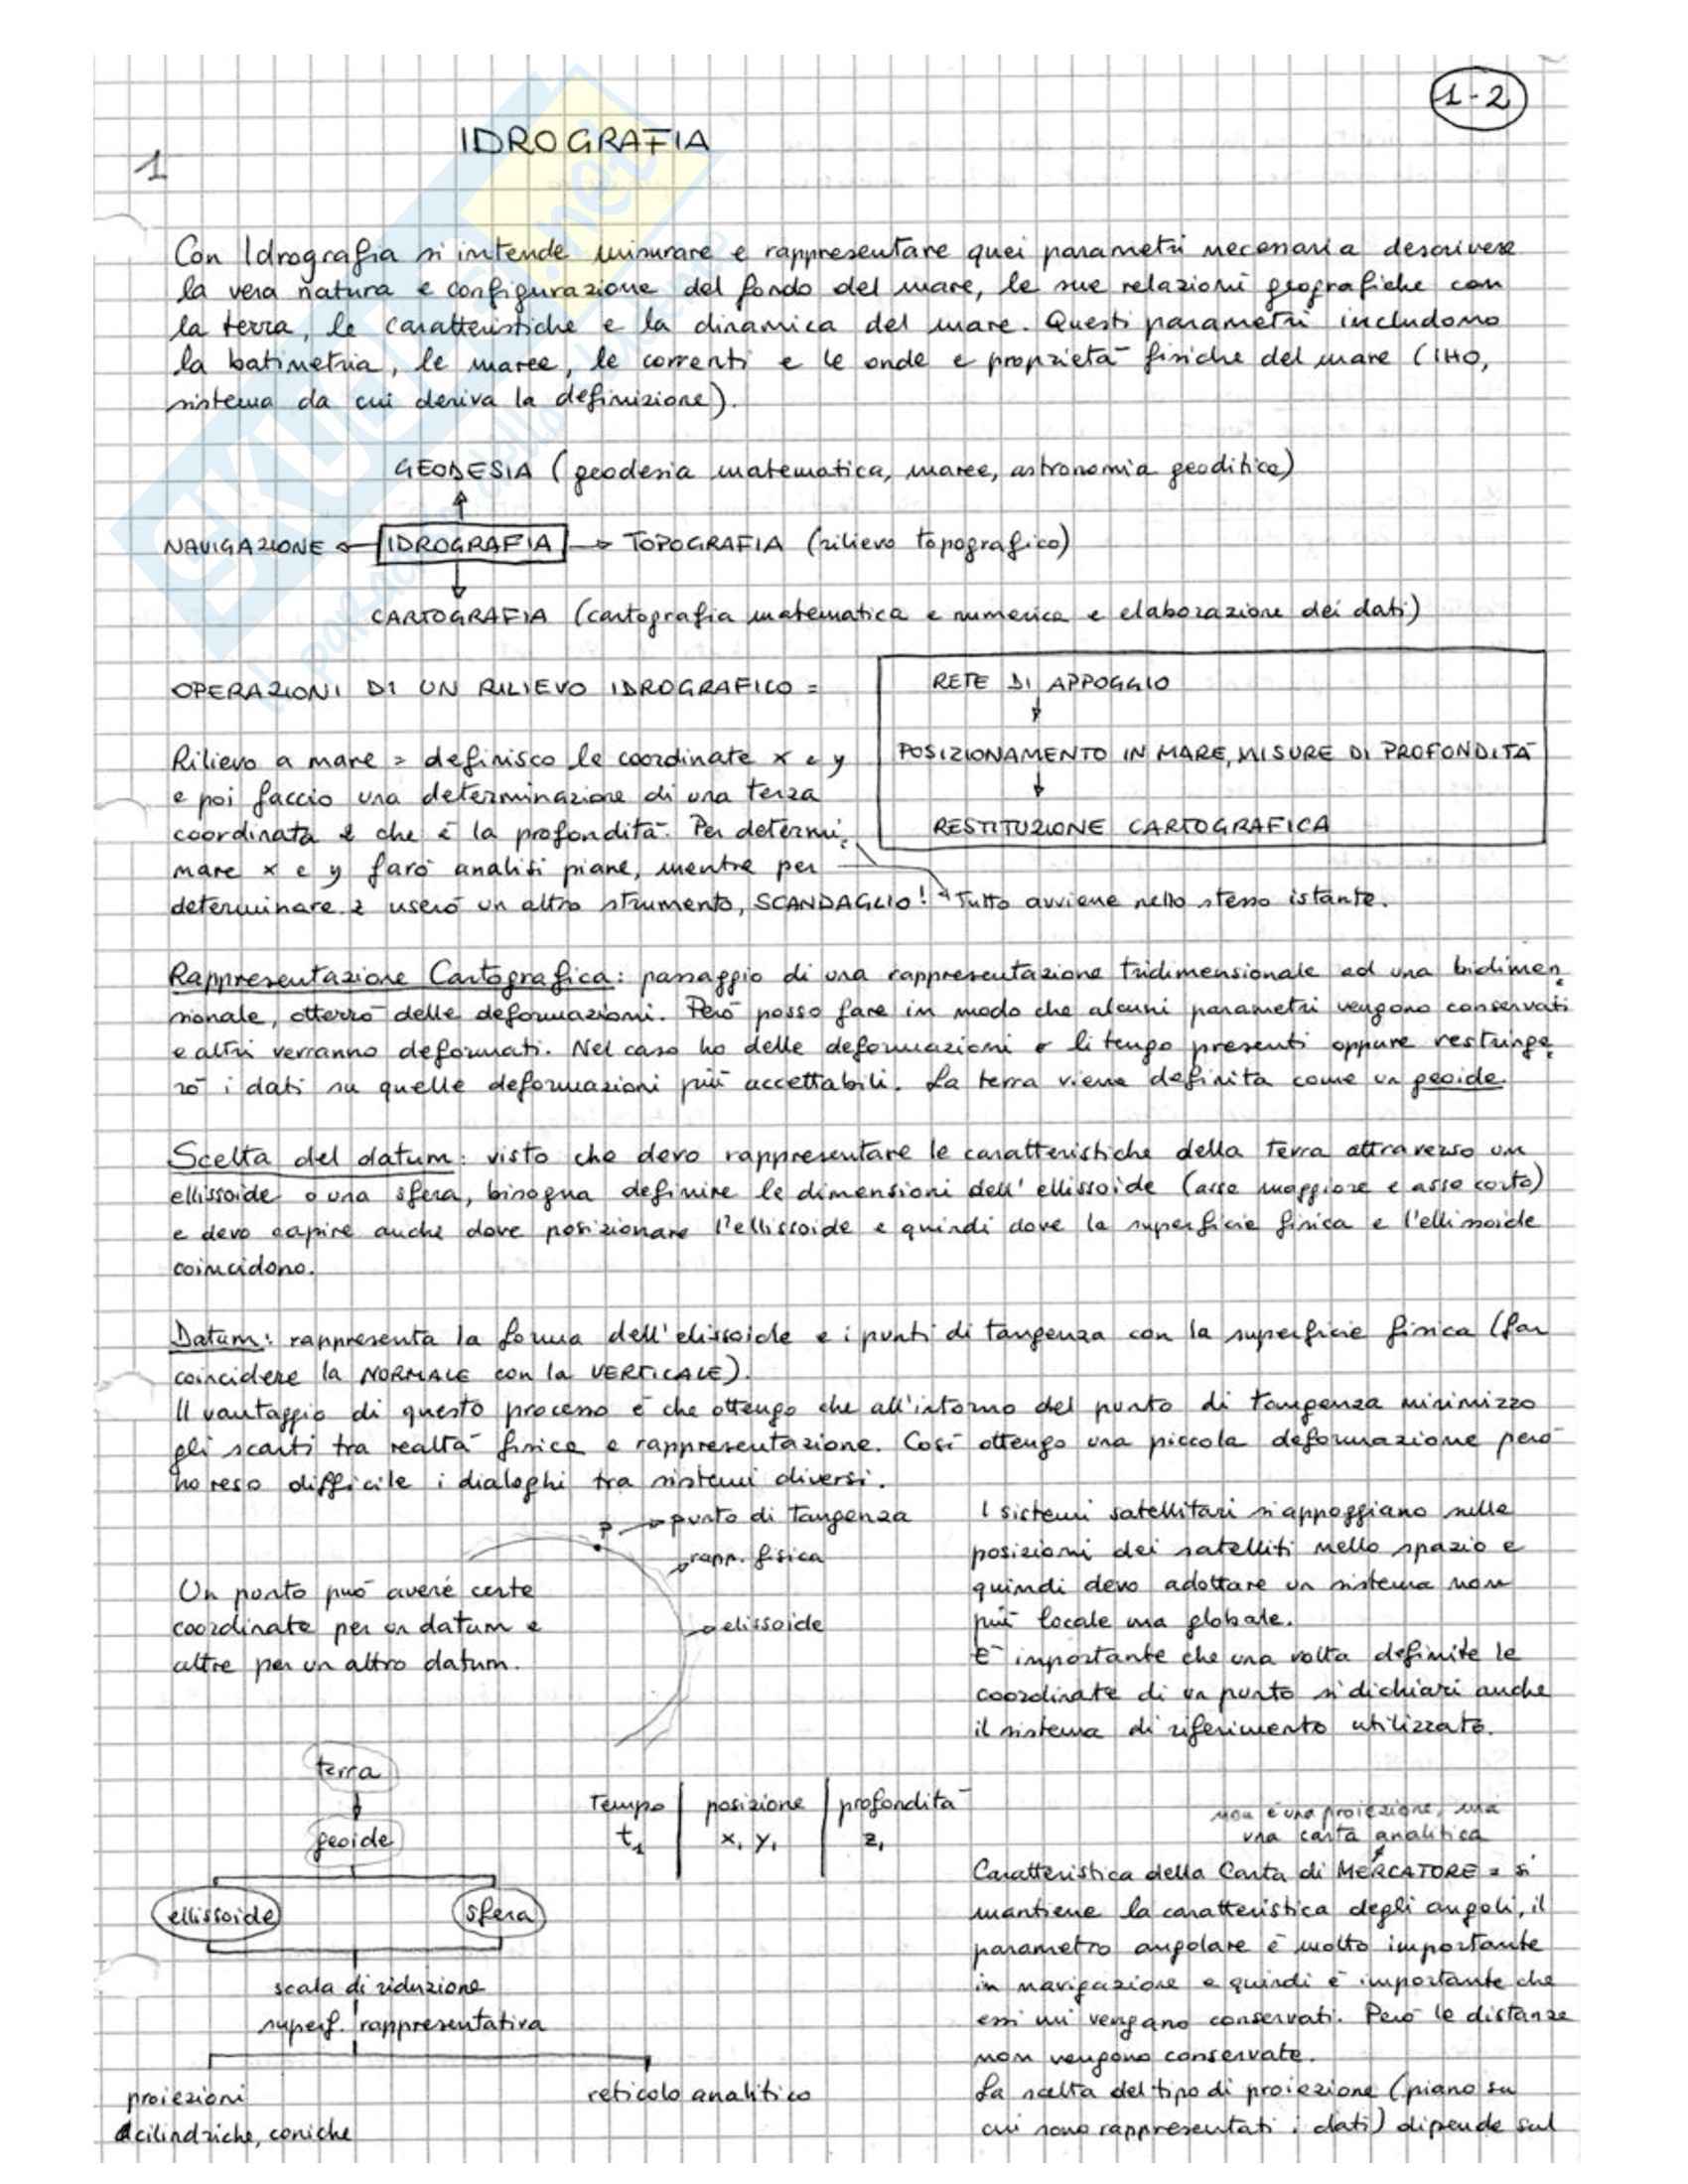 1-2
IDROGRAFIA
1
Con Idrografia si intende misurare e rappresentare quei parametri necessari a descrivere
la vera natura e configurazione del fondo del mare, le sue relazioni geografiche con
la terra, le caratteristiche e la dinamica del mare. Questi parametri includono
la batimetria, le maree, le correnti e le onde e proprietà fisiche del mare (IHO,
sistema da cui deriva la definizione).
GEODESIA (geodesia matematica, maree, astronomia geoditica)
NAVIGAZIONE ← IDROGRAFIA → TOPOGRAFIA (rilievo topografico)
CARTOGRAFIA (cartografia matematica e numerica e elaborazione dei dati)
OPERAZIONI DI UN RILIEVO IDROGRAFICO =
RETE DI APPOGGIO
POSIZIONAMENTO IN MARE, MISURE DI PROFONDITÀ
RESTITUZIONE CARTOGRAFICA
Rilievo a mare = definisco le coordinate x e y
e poi faccio una determinazione di una terza
coordinata z che è la profondità. Per determi-
nare x e y farò analisi piane, mentre per
determinare z userò un altro strumento, SCANDAGLIO! Tutto avviene nello stesso istante.
Rappresentazione Cartografica: passaggio di una rappresentazione tridimensionale ad una bidimen-
sionale, otterrò delle deformazioni. Però posso fare in modo che alcuni parametri vengono conservati
e altri verranno deformati. Nel caso ho delle deformazioni o li tengo presenti oppure restringe-
rò i dati su quelle deformazioni più accettabili. La terra viene definita come un geoide.
Scelta del datum: visto che devo rappresentare le caratteristiche della terra attraverso un
ellissoide o una sfera, bisogna definire le dimensioni dell'ellissoide (asse maggiore e asse corto)
e devo capire anche dove posizionare l'ellissoide e quindi dove la superficie fisica e l'ellissoide
coincidono.
Datum: rappresenta la forma dell'elissoide e i punti di tangenza con la superficie fisica (far
coincidere la NORMALE con la VERTICALE).
Il vantaggio di questo processo è che ottengo che all'intorno del punto di tangenza minimizzo
gli scarti tra realtà fisica e rappresentazione. Così ottengo una piccola deformazione però
ho reso difficile i dialoghi tra sistemi diversi.
P → punto di tangenza
rapp. fisica
elissoide
Un punto può avere certe
coordinate per un datum e
altre per un altro datum.
I sistemi satellitari si appoggiano sulle
posizioni dei satelliti nello spazio e
quindi devo adottare un sistema non
più locale ma globale.
È importante che una volta definite le
coordinate di un punto si dichiari anche
il sistema di riferimento utilizzato.
terra
geoide
ellissoide sfera
scala di riduzione
superf. rappresentativa
proiezioni
cilindriche, coniche
reticolo analitico
Tempo | posizione | profondità
t₁ | x₁ y₁ | z₁
non è una proiezione, ma
una carta analitica
Caratteristica della Carta di MERCATORE = si
mantiene la caratteristica degli angoli, il
parametro angolare è molto importante
in navigazione e quindi è importante che
essi mi vengano conservati. Però le distanze
non vengono conservate.
La scelta del tipo di proiezione (piano su
cui sono rappresentati i dati) dipende sul